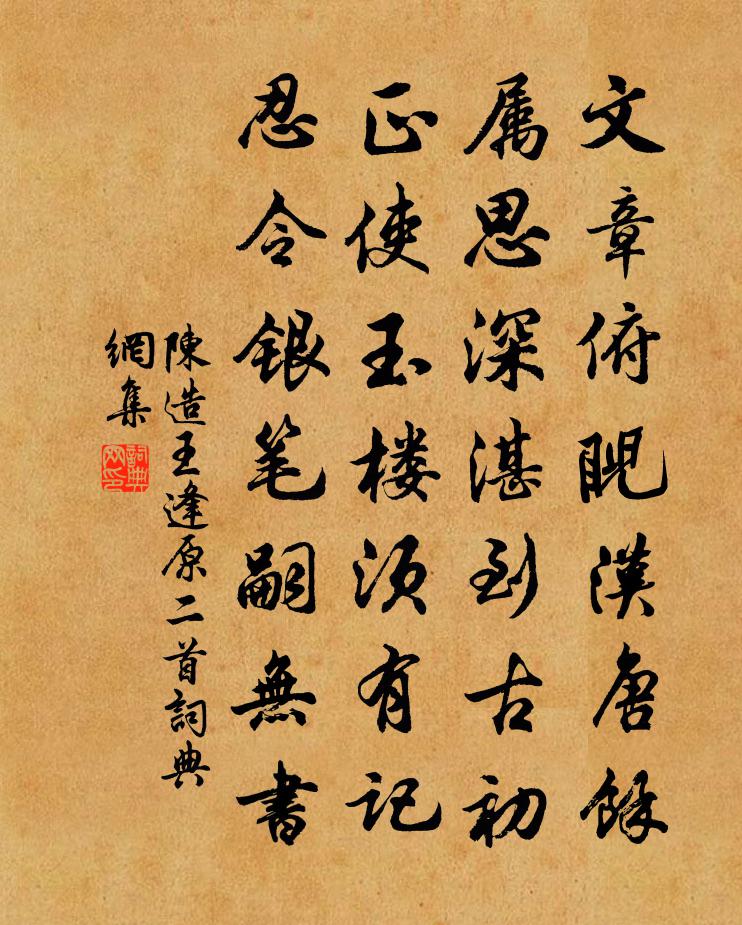 文章俯眤漢唐餘
属思深湛到古初
正使玉楼须有记
忍令银笔嗣無書
陳造王逢原二首詞典
網集
詞典
网印